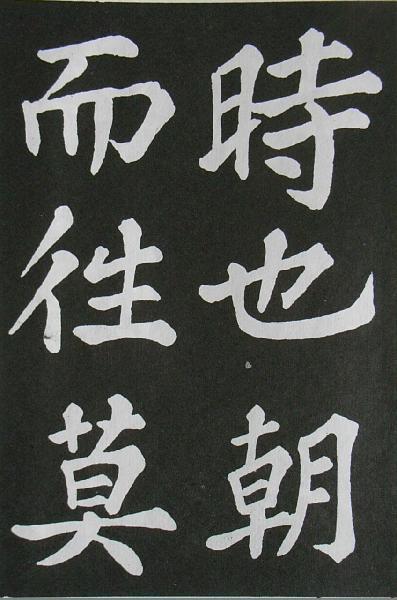 時也朝
而徃莫